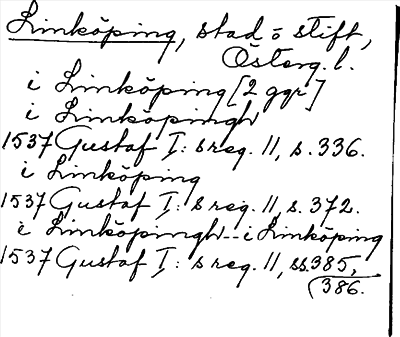 Linköping, stad o stift,
Österg. l.
i Linköping [2 ggr]
i Linköpingh
1537 Gustaf I: s reg. 11, s. 336.
i Linköping
1537 Gustaf I: s reg. 11, s. 372.
i Linköpingh - - i Linköping
1537 Gustaf I: s reg. 11, ss. 385,
386.